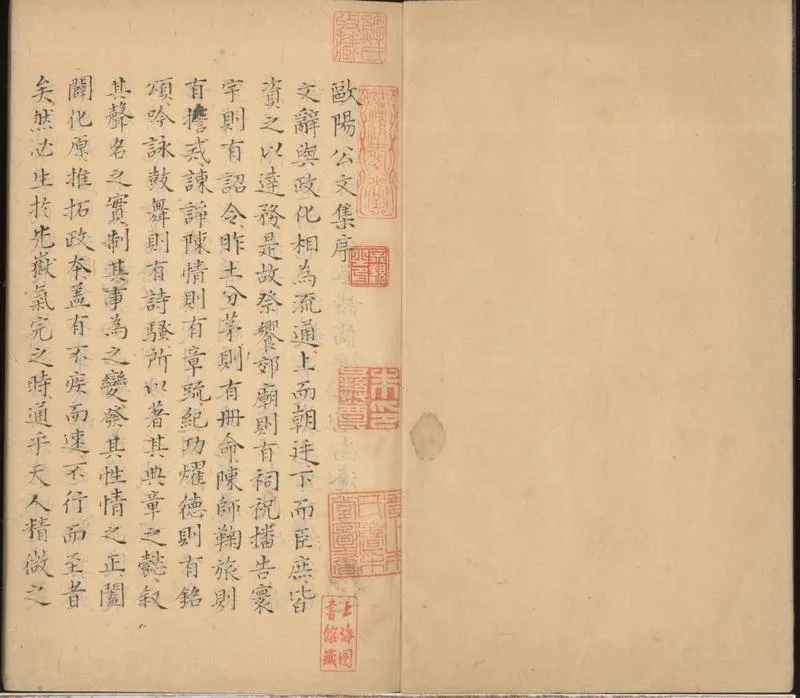 歐陽公文集序
文辭與政化相為流通上而朝廷下而臣庶皆
資之以達務是故祭饗郊廟則有祠祝播告寰
宇則有詔令胙土分茅則有冊命陳師鞠旅則
有誓戒諫諍陳情則有章疏紀功燿德則有銘
頌吟詠鼓舞則有詩騷所以著其典章之懿叙
其聲名之實制其事為之變發其性情之正闔
闢化原推拓政本盖有不疾而速不行而至者
矣然必生於光嶽氣完之時通乎天人精微之
上海圖
書館藏